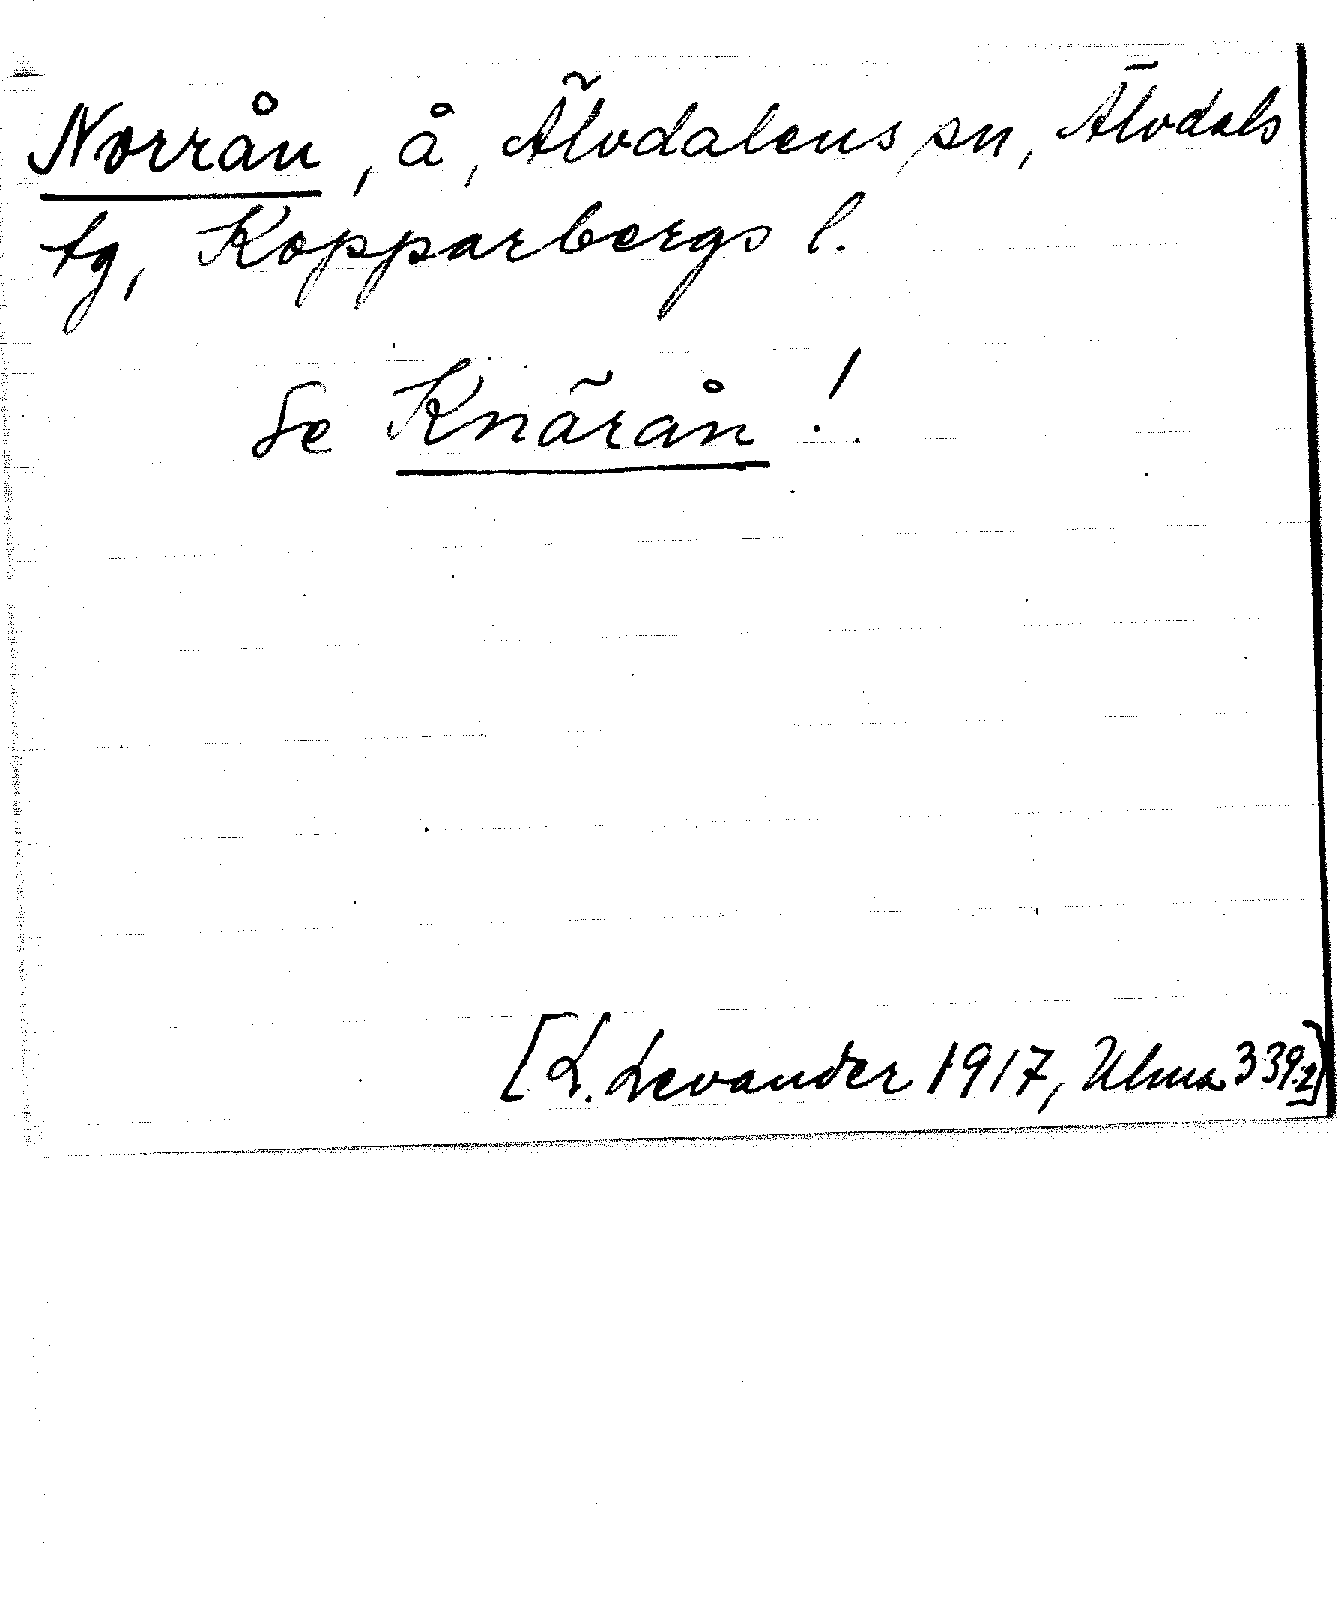 Norrån, å, Älvdalens sn, Älvdals
tg, Kopparbergs l.
Se Knärån!
[L. Levander 1917, Ulma 339:2]